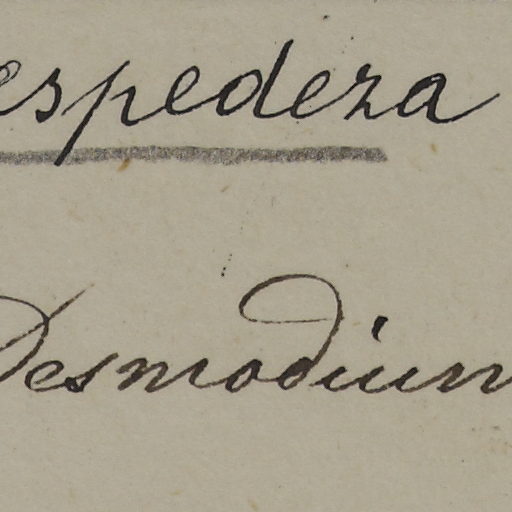 espedeza
Desmodium